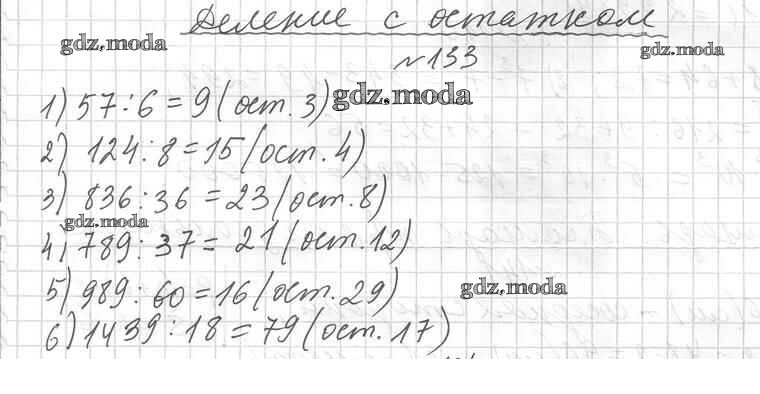 Деление с остатком
gdz.moda
gdz.moda
№133
1) 57:6=9(ост.3)
gdz.moda
2) 124:8=15(ост.4)
3) 836:36=23(ост.8)
gdz.moda
4) 789:37=21(ост.12)
5) 989:60=16(ост.29)
gdz.moda
6) 1439:18=79(ост.17)